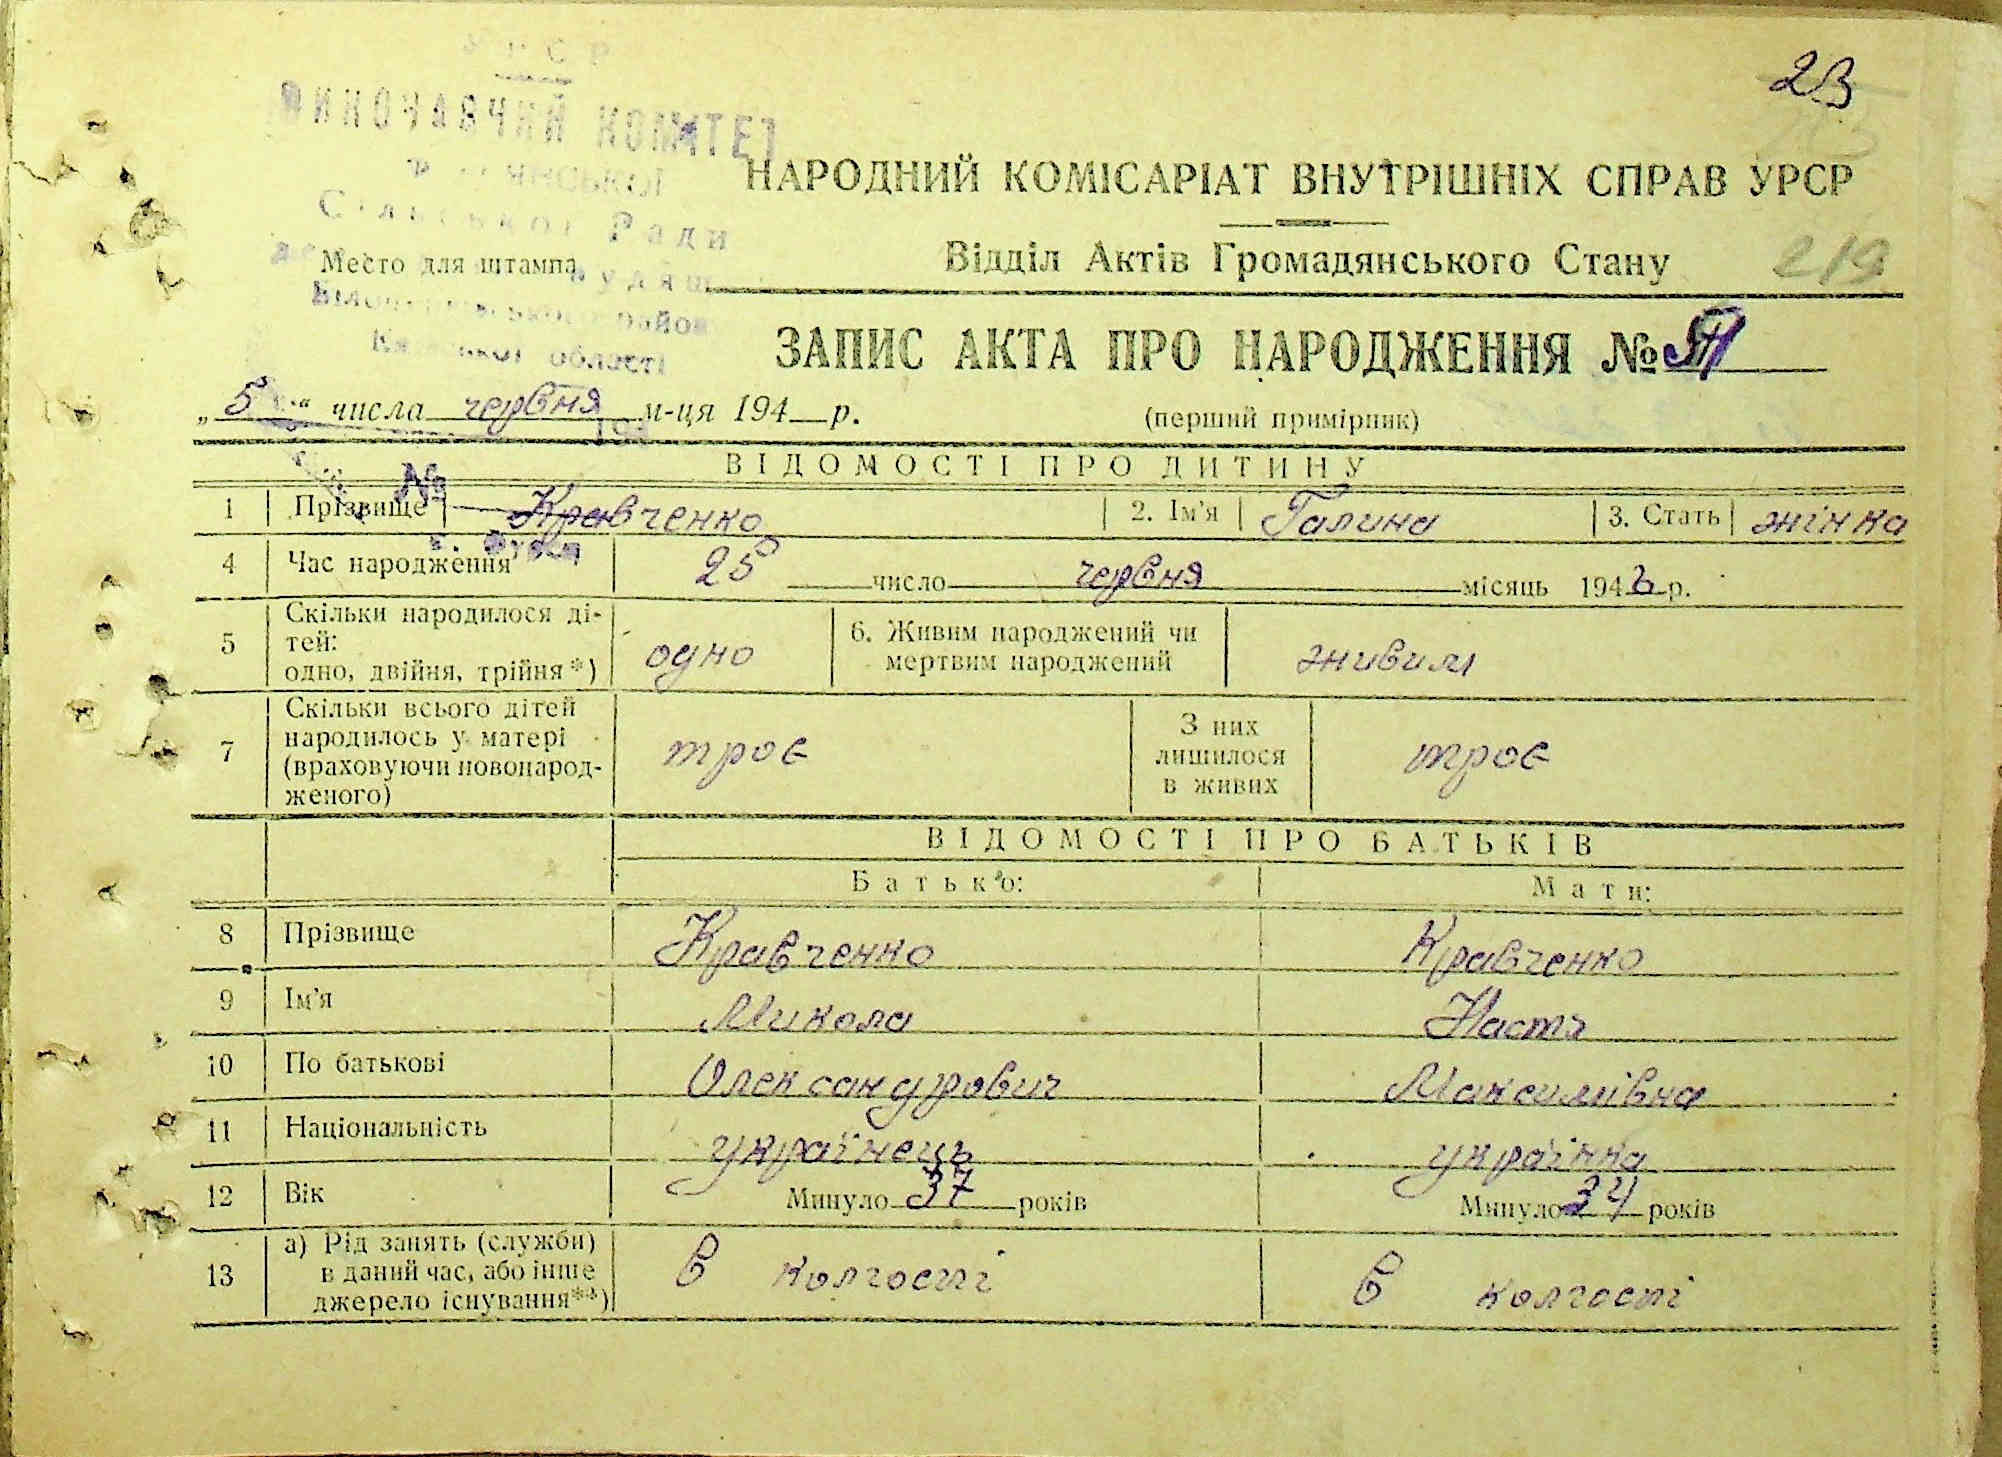 23
КОМІТЕТ
НАРОДНИЙ КОМІСАРІАТ ВНУТРІШНІХ СПРАВ УРСР
Ради
Место для штампа
Відділ Актів Громадянського Стану
219
області
ЗАПИС АКТА ПРО НАРОДЖЕННЯ №
„5“ числа червня м-ця 194 р.
(перший примірник)
ВІДОМОСТІ ПРО ДИТИНУ
№
1 Прізвище Кравченко 2. Ім’я Галина 3. Стать жінка
4 Час народження 25 число червня місяць 194 р.
5 Скільки народилося ді-
тей:
одно, двійня, трійня*) одно 6. Живим народжений чи
мертвим народжений живим
7 Скільки всього дітей
народилось у матері
(враховуючи новонарод-
женого) троє З них
лишилося
в живих троє
ВІДОМОСТІ ПРО БАТЬКІВ
Батько: Мати:
8 Прізвище Кравченко Кравченко
9 Ім’я Микола Настя
10 По батькові Олександрович Максимівна
11 Національність українець українка
12 Вік Минуло 37 років Минуло 34 років
13 а) Рід занять (служби)
в даний час, або інше
джерело існування**) В колгоспі В колгоспі